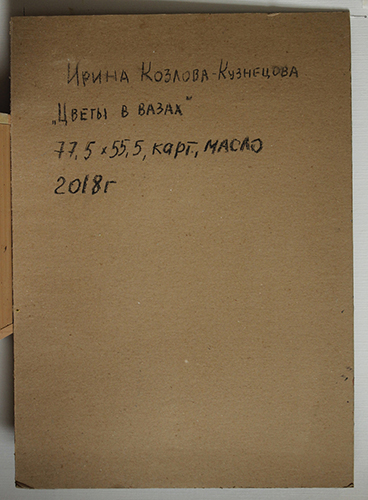 Ирина Козлова-Кузнецова
„Цветы в вазах"
77,5 x 55,5, карт., масло
2018г